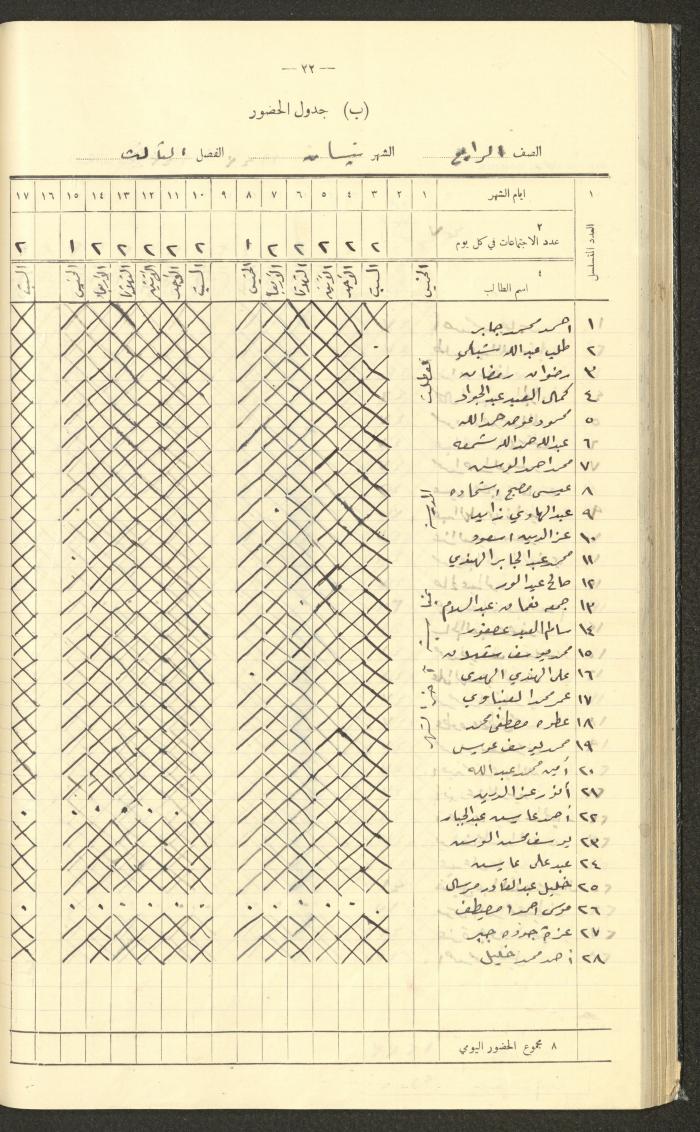 — ٢٢ —
(ب) جدول الحضور
الصف الرابع الشهر نيسان الفصل الثالث
١ ايام الشهر ١ ٢ ٣ ٤ ٥ ٦ ٧ ٨ ٩ ١٠ ١١ ١٢ ١٣ ١٤ ١٥ ١٦ ١٧
العدد المتسلسل
٢
عدد الاجتماعات في كل يوم ٢ ٢ ٢ ٢ ٢ ١ ٢ ٢ ٢ ٢ ٢ ١ ٢
٤
اسم الطالب الخميس السبت الأحد الاثنين الثلاثا الأربعا الخميس السبت الأحد الاثنين الثلاثا الأربعا الخميس السبت
١ احمد محمد جابر
٢ طلب عبدالله
٣ رضوان رمضان
٤ كمال العبد عبد الجواد
٥ محمود عوض حمدالله
٦ عبدالله حمدالله شمعه
٧ محمد احمد
٨ عيسى مصبح
٩ عبدالهادي زايد
١٠ عز الدين اسعود
١١ محمد عبد الجابر الهندي
١٢ صالح عبد
١٣ جمعه نعمان عبد السلام
١٤ سالم العبد عصفور
١٥ محمد يوسف
١٦ علي الهندي الهندي
١٧ عمر محمد العيناوي
١٨ عطوه مصطفى محمد
١٩ محمد يوسف عويس
٢٠ أمين محمد عبدالله
٢١ أنور عز الدين
٢٢ أحمد عبد الجبار
٢٣ يوسف محمد
٢٤ عبد علي
٢٥ خليل عبد القادر مرسال
٢٦ موسى احمد مصطفى
٢٧ عزة جوده جبر
٢٨ أحمد محمد خليل
عطلت المدرسة
٨ مجموع الحضور اليومي